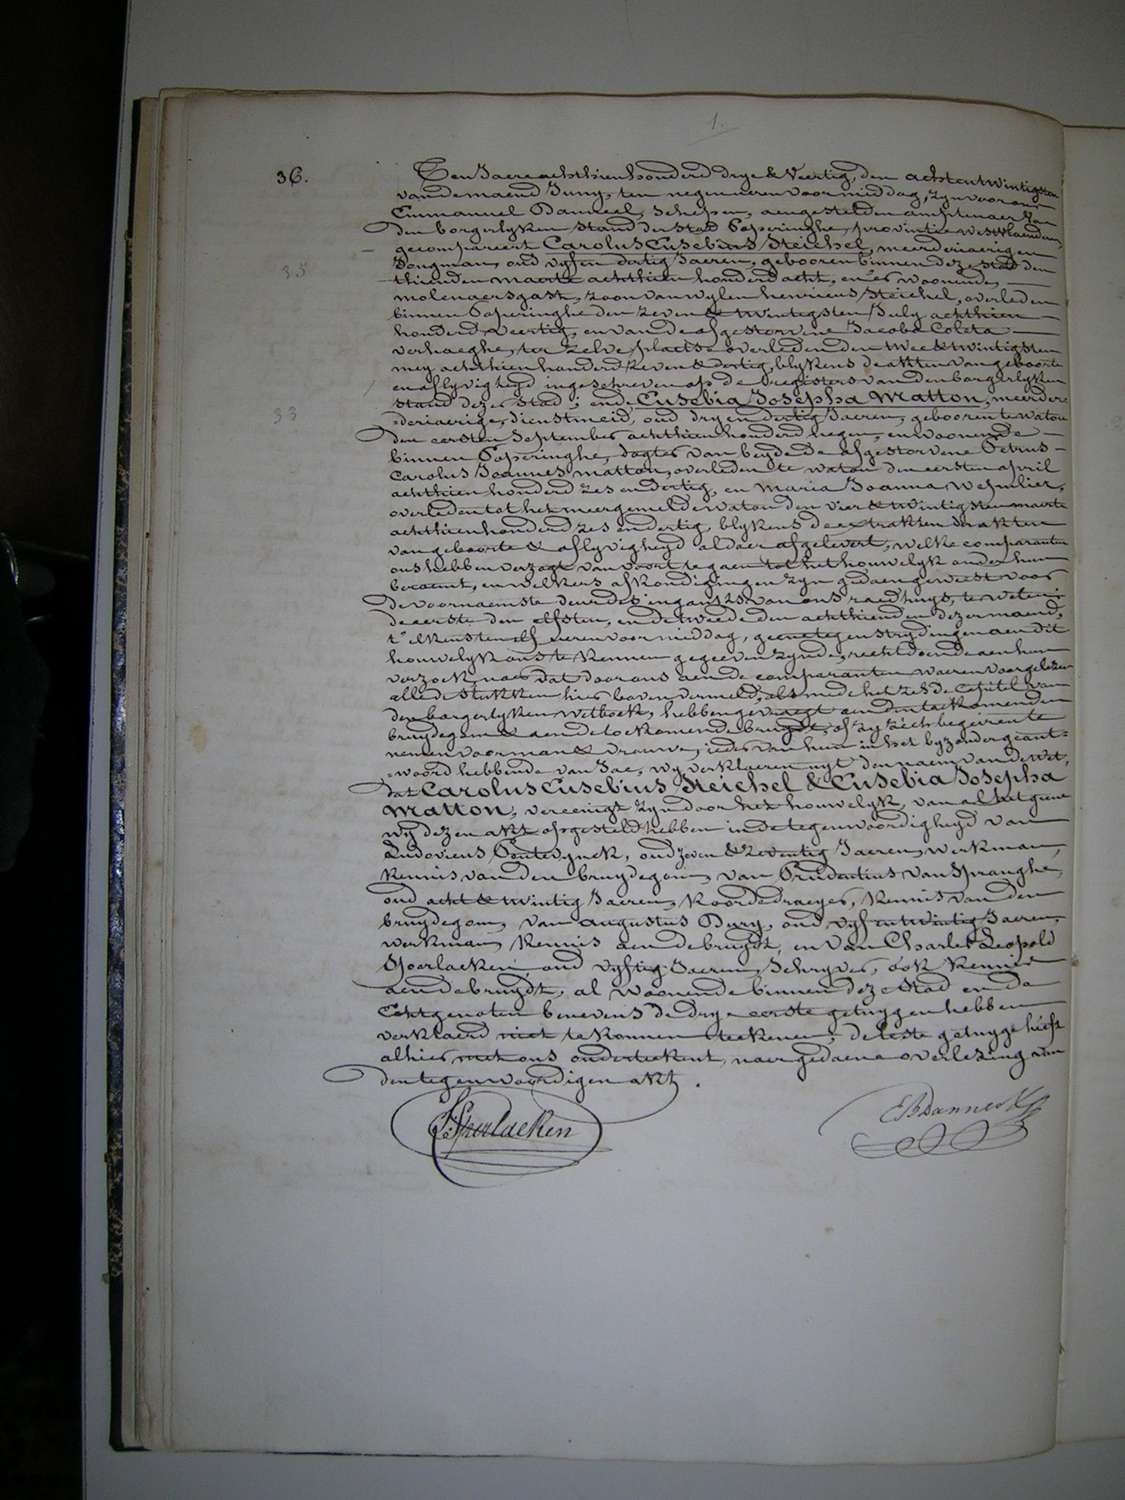 1.
36. Den Jaere achthien honderd drye & Veertig, den achtentwintigsten
van de maend Juny, ten negen uren voor middag, zyn voor ons
Emmanuel Danneel, Schepen, aengestelden amptenaer van
den borgerlyken stand der stad Poperinghe, provintie westvlaenderen,
gecompareert Carolus Eusebius Steichel, meerderjaerigen
35 Jongman, oud vyf en dertig Jaeren, gebooren binnen deze stad den
thienden maerte achthien honderd acht, en er woonende,
molenaersgast, zoon van wylen henricus Steichel, overleden
binnen Poperinghe den zeven & twintigsten July achthien
honderd veertig, en van de afgestorvene Jacoba Coleta
verhaeghe, ter zelve plaetse overleden den twee & twintigsten
mey achthien honderd zeven & dertig, blykens de akten van geboorte
en aflyvigheyd ingeschreven op de registers van den borgerlyken
stand dezer stad; ende Eusebia Josepha Matton, meerder
33 =derjaerige, dienstmeid, oud dry en dertig Jaeren, gebooren te watou
den eersten September achthien honderd negen, en woonende
binnen Poperinghe, dogter van beyde de afgestorvene Petrus
Carolus Joannes matton, overleden te watou den eersten april
achthien honderd zes en dertig, en Maria Joanna
overleden tot het meergemelde watou den vier & twintigsten maerte
achthien honderd zes en dertig, blykens de extrakten d'akten
van geboorte & aflyvigheyd aldaer afgelevert, welke comparanten
ons hebben verzogt van voort te gaen tot het houwelyk onder hun
beraemt, en welkers afkondigingen zyn gedaen geweest voor
de voornaemste deur des ingangs van ons raedhuys, te weten:
de eerste den elfsten, en de tweede den achthienden dezer maend,
t'elkens ten elf uren voor middag, geene tegenstrydingen aen dit
houwelyk ons te kennen gegeeven zynde, recht doende aen hun
verzoek, naer dat door ons aen de comparanten waeren voorgelezen
alle de stukken hier boven vermeld, als mede het zesde Capitel van
den borgerlyken wetboek, hebben gevregt aen den toekomenden
bruydegom & aen de toekomende bruydt, of zy zich begeiren te
nemen voor man & vrouwe, ieder van hun in het byzonder geant=
=woord hebbende van Jae, wy verklaeren uyt den naem van de wet,
dat Carolus Eusebius Steichel & Eusebia Josepha
Matton, vereenigt zyn door het houwelyk, van al het geene
wy dezen akt opgesteld hebben in de tegenwoordigheyd van
Ludovicus oud zeven & zeventig Jaeren, werkman,
kennis van den bruydegom, van Prudentius van Spranghe,
oud acht & twintig Jaeren, koordedraeyer, kennis van den
bruydegom, van Augustus Dury, oud vyf en twintig Jaeren,
werkman, kennis aen de bruydt, en van Charles Leopold
Spoerlaeken, oud vyftig Jaeren, Schryver, ook kennis
aen de bruydt, al woonende binnen deze stad en de
Echtgenoten benevens de dry eerste getuygen hebben
verklaerd niet te konnen teekenen; de leste getuyge heeft
alhier met ons onderteekent, naer gedaene overlezing van
den tegenwoordigen akt.